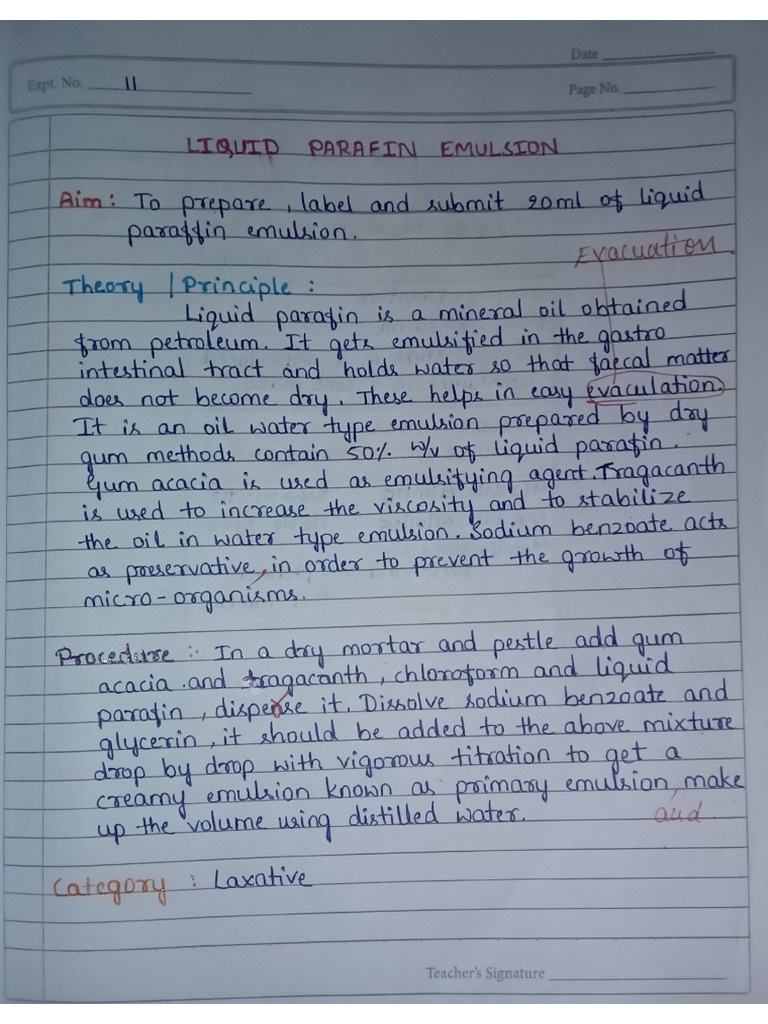 Date
Expt. No. 11
Page No.
LIQUID PARAFIN EMULSION
Aim: To prepare, label and submit 20ml of liquid
paraffin emulsion.
Evacuation
Theory / Principle :
Liquid parafin is a mineral oil obtained
from petroleum. It gets emulsified in the gastro
intestinal tract and holds water so that faecal matter
does not become dry. These helps in easy Evaculation
It is an oil water type emulsion prepared by dry
gum methods contain 50% w/v of liquid parafin.
Gum acacia is used as emulsifying agent. Tragacanth
is used to increase the viscosity and to stabilize
the oil in water type emulsion. Sodium benzoate acts
as preservative, in order to prevent the growth of
micro-organisms.
Procedure :- In a dry mortar and pestle add gum
acacia and tragacanth, chloroform and liquid
parafin, dispense it. Dissolve sodium benzoate and
glycerin, it should be added to the above mixture
drop by drop with vigorous titration to get a
creamy emulsion known as primary emulsion, make
up the volume using distilled water. and
Category : Laxative
Teacher's Signature